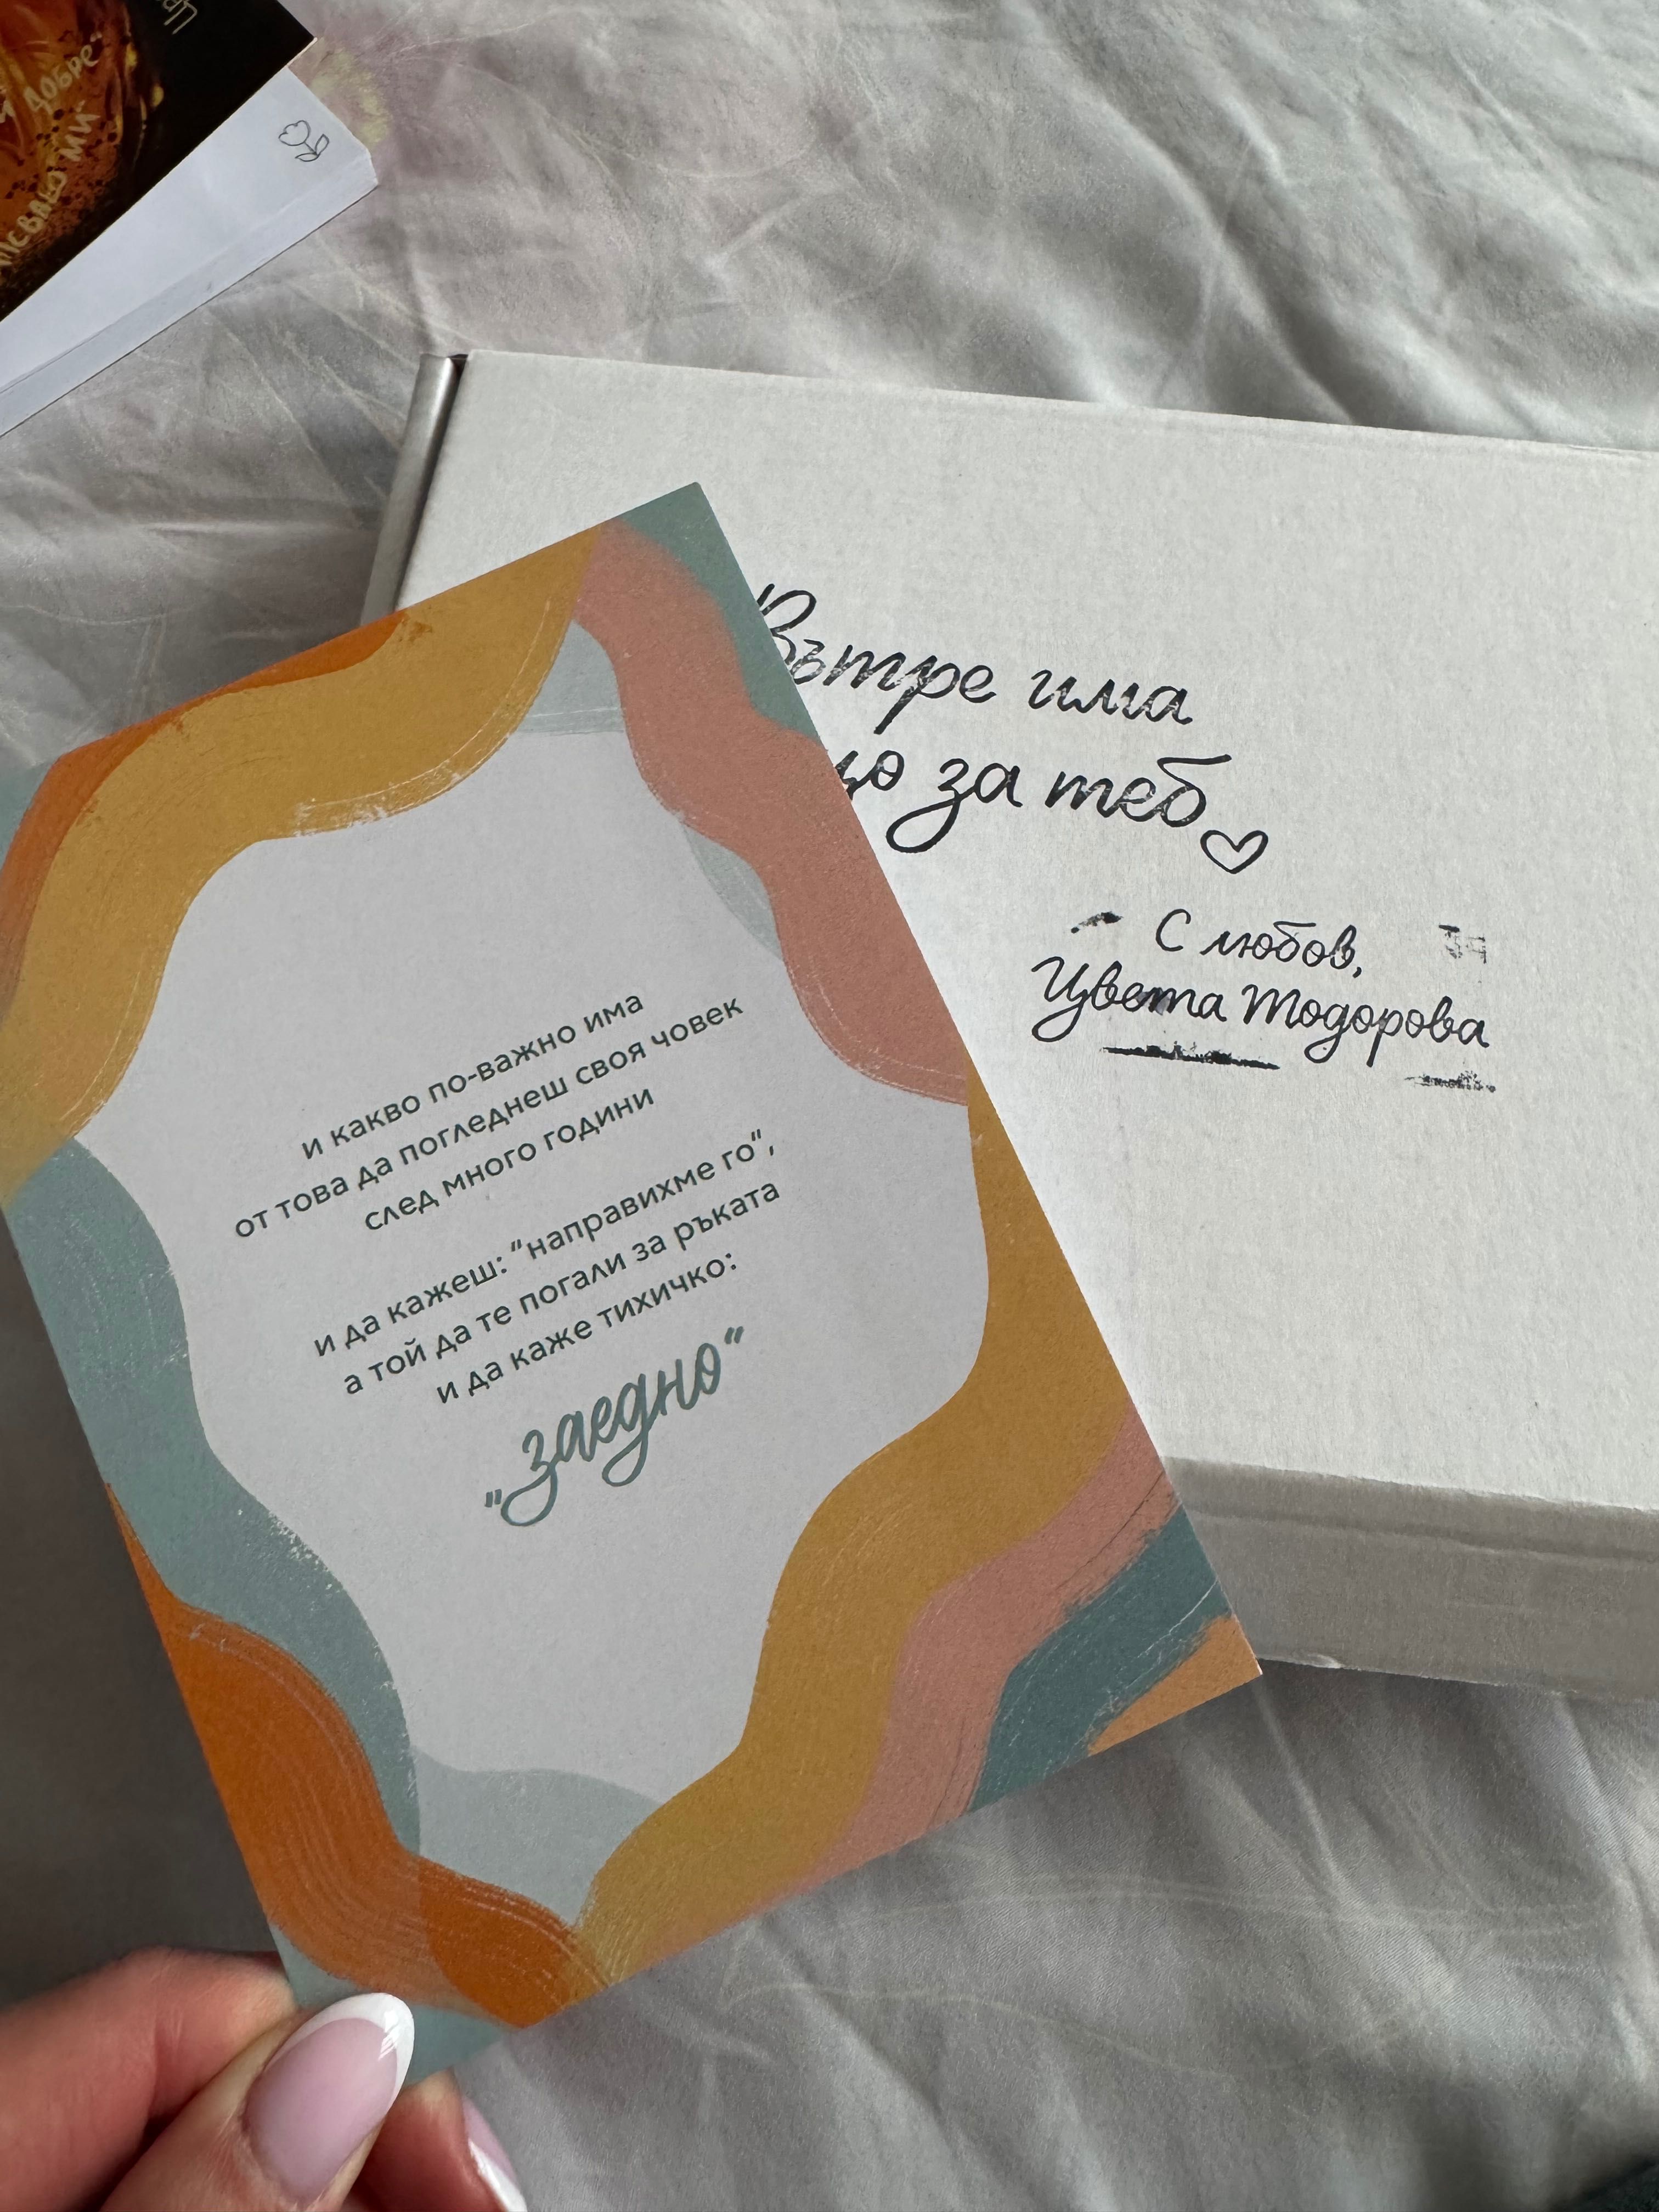 ДОБРЕ
МИ
Вътре има
за теб
С любов,
Цвета Тодорова
и какво по-важно има
от това да погледнеш своя човек
след много години
и да кажеш: "направихме го",
а той да те погали за ръката
и да каже тихичко:
„заедно“